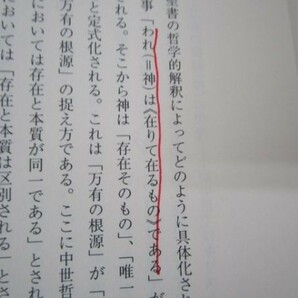 聖書の哲学的解釈によってどのように具体化さ
事「われ(=神)は《在りて在るもの》である」が
れる。そこから神は「存在そのもの」、「唯一
と定式化される。これは「万有の根源」が「
万有の根源」の捉え方である。ここに中世哲
においては存在と本質が同一である」とされ
おいては「存在と本質は区別される」とさ